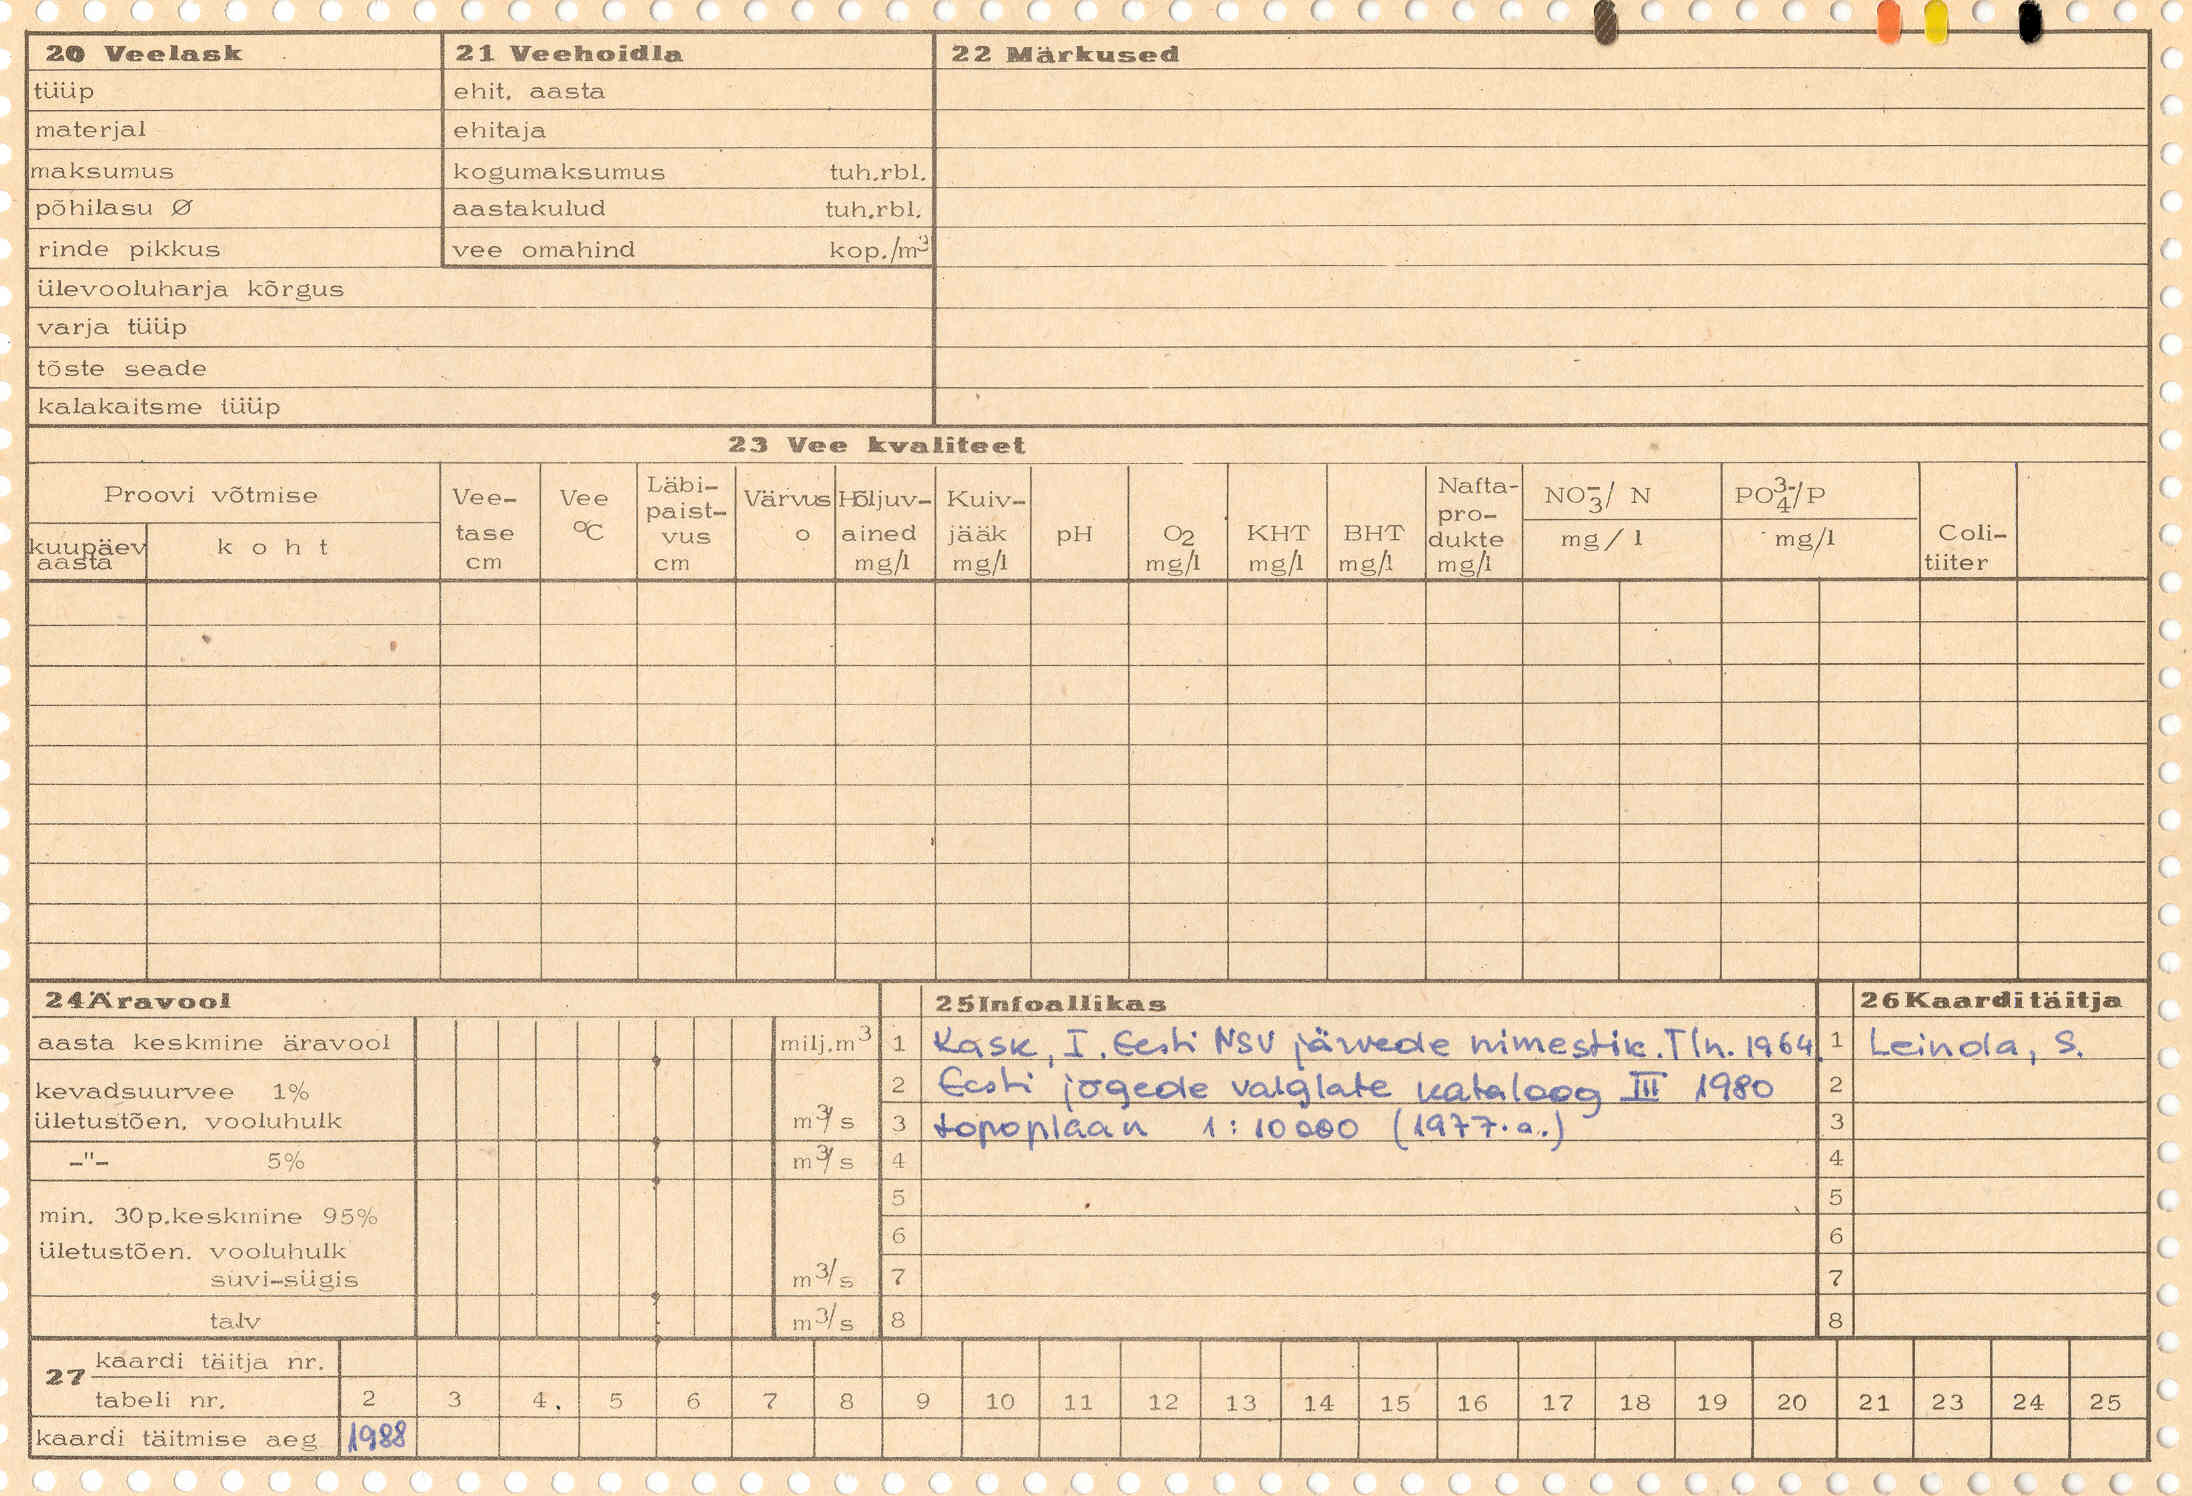 20 Veelask
tüüp
materjal
maksumus
põhilasu Ø
rinde pikkus
ülevooluharja kõrgus
varja tüüp
tõste seade
kalakaitsme tüüp
21 Veehoidla
ehit. aasta
ehitaja
kogumaksumus tuh.rbl.
aastakulud tuh.rbl.
vee omahind kop./m³
22 Märkused
23 Vee kvaliteet
Proovi võtmise
kuupäev aasta
koht
Vee-
tase
cm
Vee
°C
Läbi-
paist-
vus
cm
Värvus
o
Hõljuv-
ained
mg/l
Kuiv-
jääk
mg/l
pH
O₂
mg/l
KHT
mg/l
BHT
mg/l
Nafta-
pro-
dukte
mg/l
NO₃⁻/ N
mg/l
PO₄³⁻/P
mg/l
Coli-
tiiter
24 Äravool
aasta keskmine äravool milj.m³
kevadsuurvee 1%
ületustõen. vooluhulk m³/s
-"- 5% m³/s
min. 30p.keskmine 95%
ületustõen. vooluhulk
suvi-sügis m³/s
talv m³/s
25 Infoallikas
1 Kask, I. Eesti NSV järvede nimestik. Tln. 1964.
2 Eesti jõgede valglate kataloog III 1980
3 topoplaan 1:10000 (1977.a.)
4
5
6
7
8
26 Kaardi täitja
1 Leinola, S.
2
3
4
5
6
7
8
27 kaardi täitja nr.
tabeli nr. 2 3 4. 5 6 7 8 9 10 11 12 13 14 15 16 17 18 19 20 21 23 24 25
kaardi täitmise aeg 1988